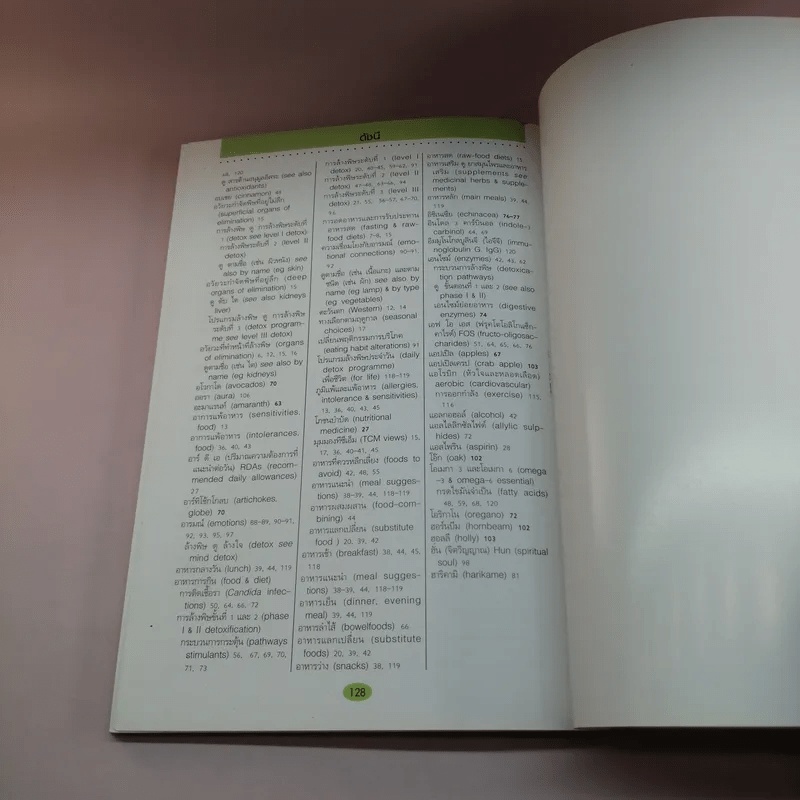 ดัชนี
68, 120
ดู สารต้านอนุมูลอิสระ (see also
antioxidants)
อบเชย (cinnamon) 49
อวัยวะกำจัดพิษที่อยู่ไม่ลึก
(superficial organs of
elimination) 15
การล้างพิษ ดู การล้างพิษระดับที่
1 (detox see level I detox)
การล้างพิษระดับที่ 2 (level II
detox)
ดู ตามชื่อ (เช่น ผิวหนัง) see
also by name (eg skin)
อวัยวะกำจัดพิษที่อยู่ลึก (deep
organs of elimination) 15
ดู ตับ ไต (see also kidneys
liver)
โปรแกรมล้างพิษ ดู การล้างพิษ
ระดับที่ 3 (detox program-
me see level III detox)
อวัยวะที่ทำหน้าที่ล้างพิษ (organs
of elimination) 6, 12, 15, 16
ดูตามชื่อ (เช่น ไต) see also by
name (eg kidneys)
อโวกาโด (avocados) 70
ออรา (aura) 106
อะมาแรนท์ (amaranth) 63
อาการแพ้อาหาร (sensitivities,
food) 13
อาการแพ้อาหาร (intolerances,
food) 36, 40, 43
อาร์ ดี เอ (ปริมาณความต้องการที่
แนะนำต่อวัน) RDAs (recom-
mended daily allowances)
27
อาร์ทิโช้กโกลบ (artichokes,
globe) 70
อารมณ์ (emotions) 88-89, 90-91,
92, 93, 95, 97
ล้างพิษ ดู ล้างใจ (detox see
mind detox)
อาหารกลางวัน (lunch) 39, 44, 119
อาหารการกิน (food & diet)
การติดเชื้อรา (Candida infec-
tions) 50, 64, 66, 72
การล้างพิษขั้นที่ 1 และ 2 (phase
I & II detoxification)
กระบวนการกระตุ้น (pathways
stimulants) 56, 67, 69, 70,
71, 73
การล้างพิษระดับที่ 1 (level I
detox) 20, 40-45, 59-62, 91
การล้างพิษระดับที่ 2 (level II
detox) 47-48, 63-66, 94
การล้างพิษระดับที่ 3 (level III
detox) 21, 55, 56-57, 67-70,
96
การอดอาหารและการรับประทาน
อาหารสด (fasting & raw-
food diets) 7-8, 15
ความเชื่อมโยงกับอารมณ์ (emo-
tional connections) 90-91,
92
ดูตามชื่อ (เช่น เนื้อแกะ) และตาม
ชนิด (เช่น ผัก) see also by
name (eg lamp) & by type
(eg vegetables)
ตะวันตก (Western) 12, 14
ทางเลือกตามฤดูกาล (seasonal
choices) 17
เปลี่ยนพฤติกรรมการบริโภค
(eating habit alterations) 91
โปรแกรมล้างพิษประจำวัน (daily
detox programme)
เพื่อชีวิต (for life) 118-119
ภูมิแพ้และแพ้อาหาร (allergies,
intolerance & sensitivities)
13, 36, 40, 43, 45
โภชนบำบัด (nutritional
medicine) 27
มุมมองทีซีเอ็ม (TCM views) 15,
17, 36, 40-41, 45
อาหารที่ควรหลีกเลี่ยง (foods to
avoid) 42, 48, 55
อาหารแนะนำ (meal sugges-
tions) 38-39, 44, 118-119
อาหารผสมผสาน (food-com-
bining) 44
อาหารแลกเปลี่ยน (substitute
food ) 20, 39, 42
อาหารเช้า (breakfast) 38, 44, 45,
118
อาหารแนะนำ (meal sugges-
tions) 38-39, 44, 118-119
อาหารเย็น (dinner, evening
meal) 39, 44, 119
อาหารลำไส้ (bowelfoods) 66
อาหารแลกเปลี่ยน (substitute
foods) 20, 39, 42
อาหารว่าง (snacks) 38, 119
อาหารสด (raw-food diets) 15
อาหารเสริม ดู ยาสมุนไพรและอาหาร
เสริม (supplements see
medicinal herbs & supple-
ments)
อาหารหลัก (main meals) 39, 44,
119
อิชิเนเซีย (echinacea) 76-77
อินโดล 3 คาร์บินอล (indole-3
carbinol) 64, 69
อิมมูโนโกลบูลินจี (ไอจีจี) (immu-
noglobulin G IgG) 120
เอนไซม์ (enzymes) 42, 43, 62
กระบวนการล้างพิษ (detoxica-
tion pathways)
ดู ขั้นตอนที่ 1 และ 2 (see also
phase I & II)
เอนไซม์ย่อยอาหาร (digestive
enzymes) 74
เอฟ โอ เอส (ฟรุคโตโอลิโกแซ็ก-
คาไรด์) FOS (fructo-oligosac-
charides) 51, 64, 65, 66, 76
แอปเปิล (apples) 67
แอปเปิลแครบ (crab apple) 103
แอโรบิก (หัวใจและหลอดเลือด)
aerobic (cardiovascular)
การออกกำลัง (exercise) 115,
116
แอลกอฮอล์ (alcohol) 42
แอลไลลิกซัลไฟด์ (allylic sulp-
hides) 72
แอสไพริน (aspirin) 28
โอ๊ก (oak) 102
โอเมกา 3 และโอเมกา 6 (omega
-3 & omega-6 essential)
กรดไขมันจำเป็น (fatty acids)
48, 59, 68, 120
โอริกาโน (oregano) 72
ฮอร์นบีม (hornbeam) 102
ฮอลลี (holly) 103
ฮัน (จิตวิญญาณ) Hun (spiritual
soul) 98
ฮาริคามิ (harikame) 81
128